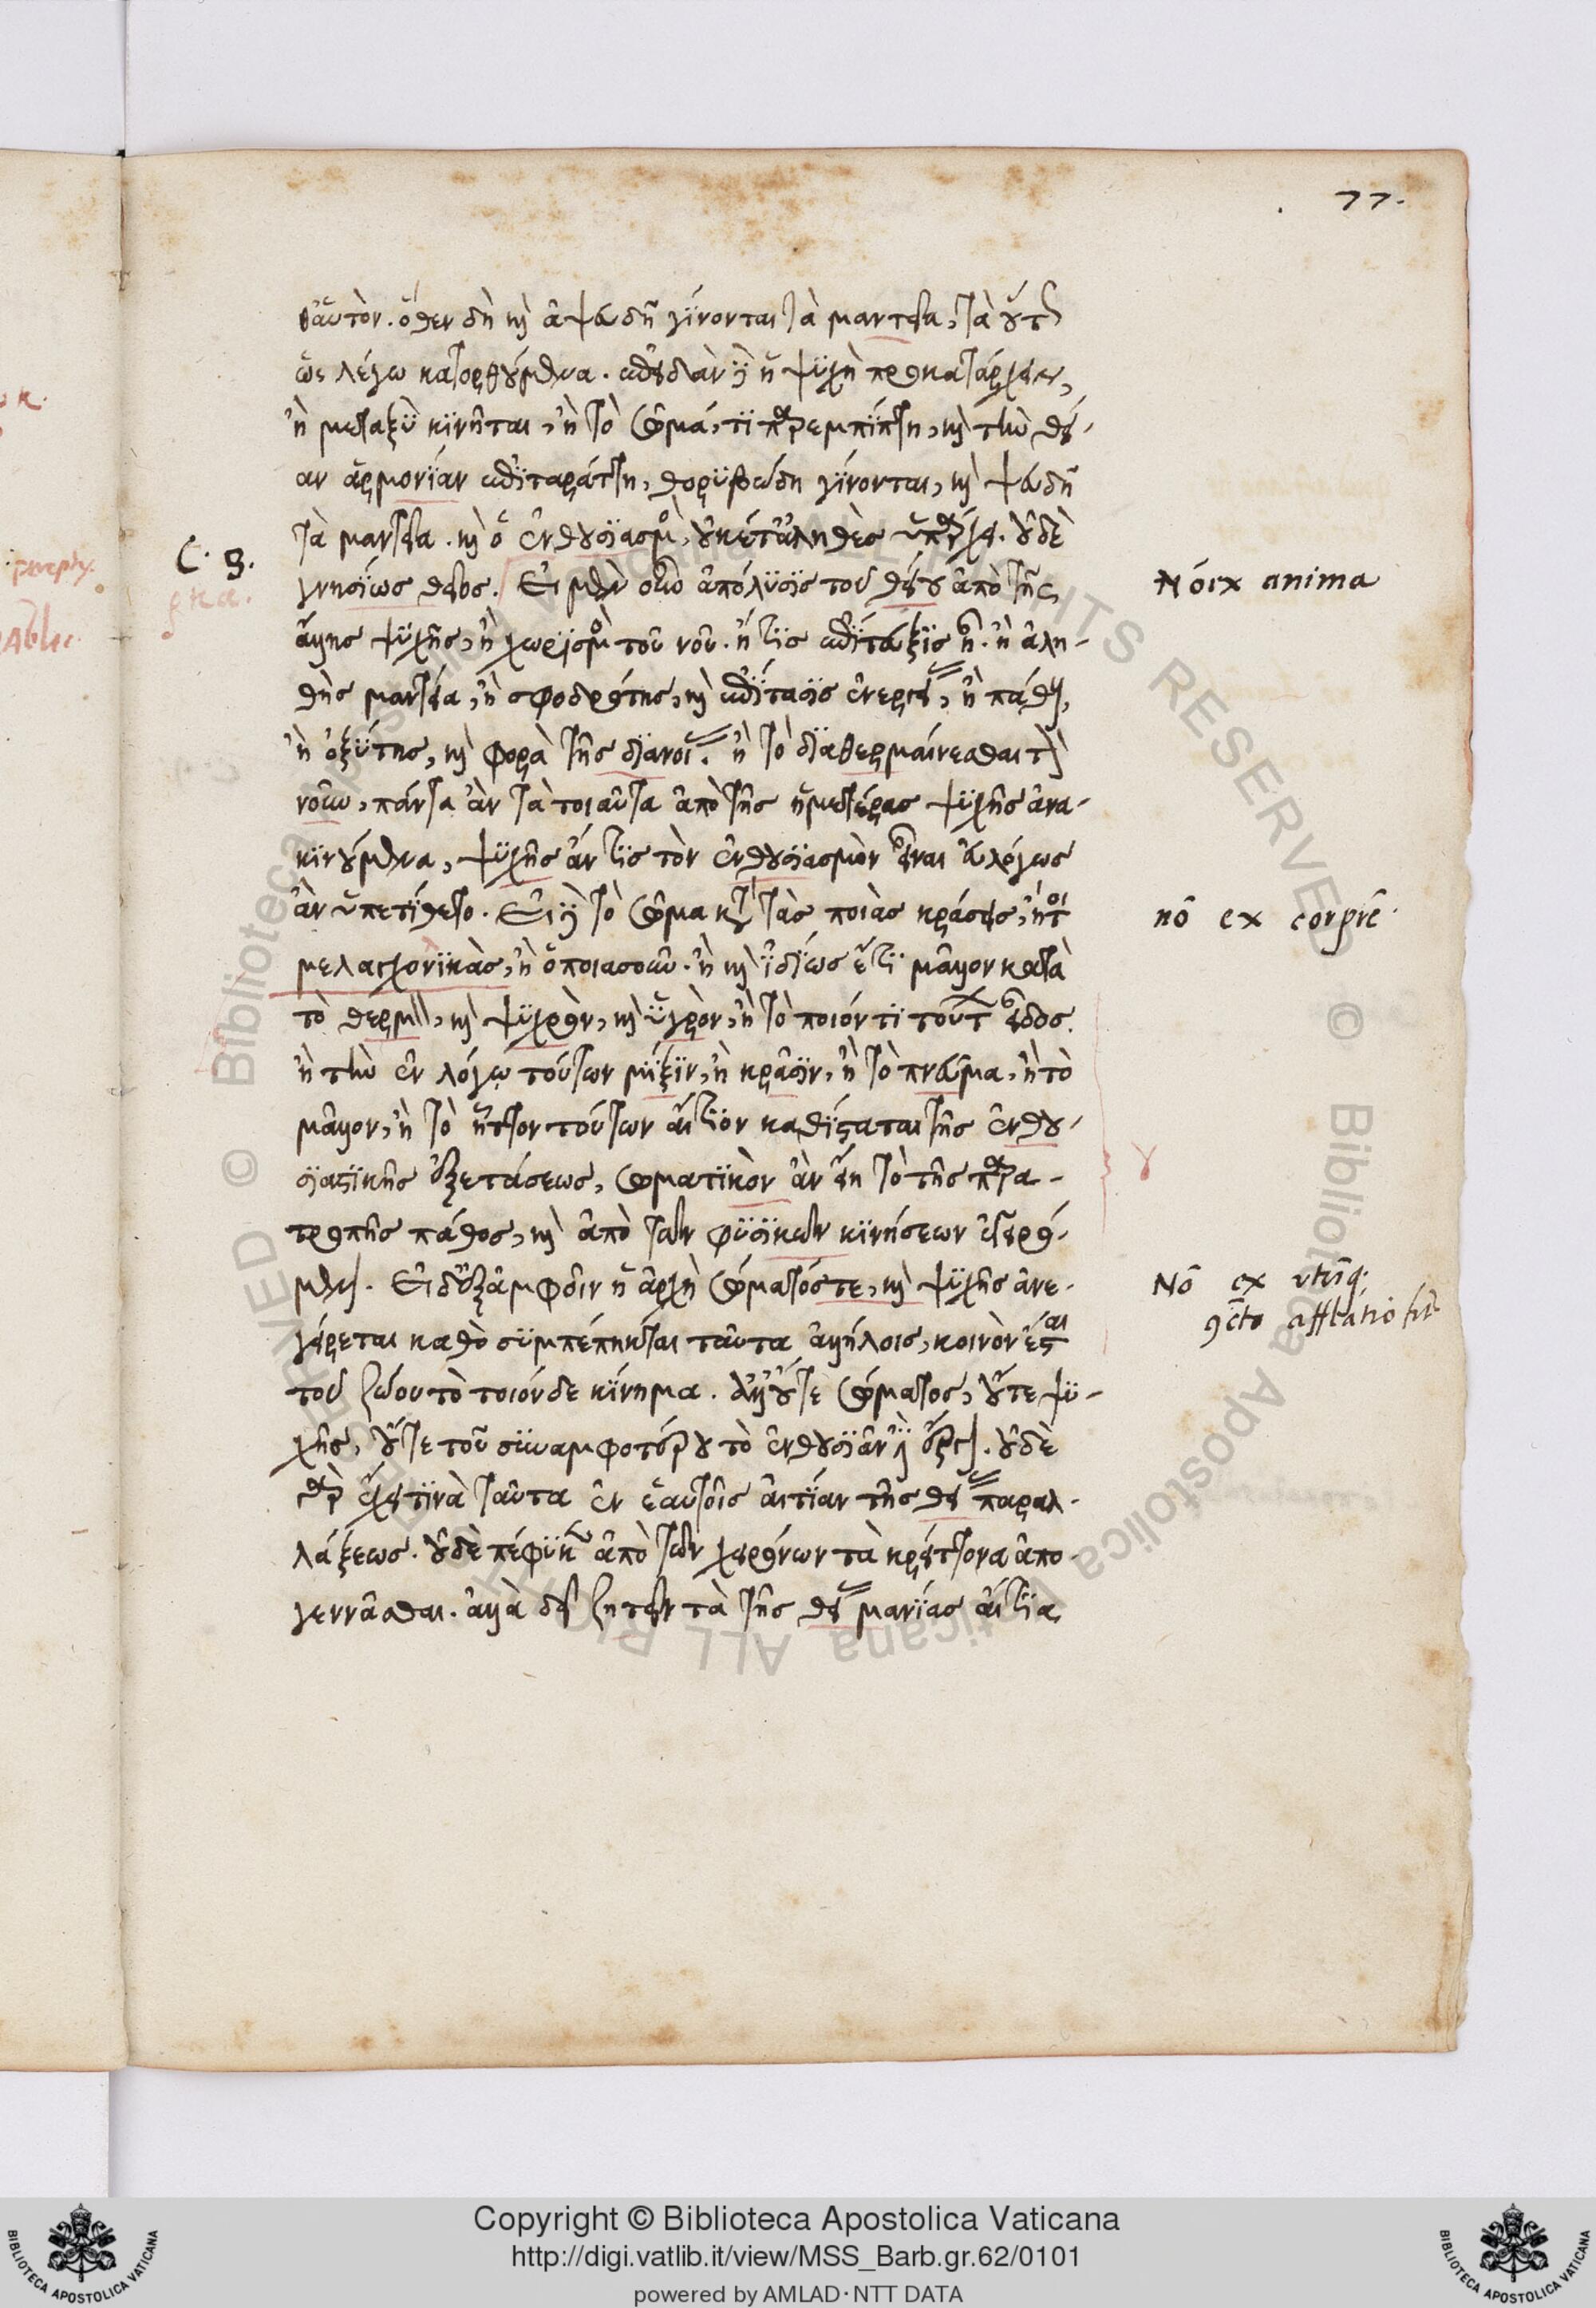 77.
θ' αὑτόν. ὅθεν δὴ καὶ ἀψευδῆ γίνονται τὰ μαντεῖα, τὰ οὕτ
ὡς λέγω κατορθούμενα. ἐπειδὰν δὲ ἡ ψυχὴ προκατάρχει,
ἢ μεταξὺ κινῆται, ἢ τὸ σῶμά, τι παρεμπίπτη, καὶ τὴν θεί-
αν ἁρμονίαν ἐπιταράττη, θορυβώδη γίνονται, καὶ ψευδῆ
τὰ μαντεῖα. καὶ ὁ ἐνθουσιασμὸς, οὐκέτ' ἀληθὲς ὑπάρχει. οὐδὲ
C. 8.
γνησίως θεῖος. Εἰ μὲν οὖν ἀπόλυσις τοῦ θείου ἀπὸ τῆς
Nō ex anima
ἄλλης ψυχῆς, ἢ χωρισμὸς τοῦ νοῦ. ἤ τις ἐπίταξις ἦν. ἢ ἀλη-
θὴς μαντεία, ἢ σφοδρότης, καὶ ἐπίτασις ἐνεργείας, ἢ πάθους,
ἢ ὀξύτης, καὶ φορὰ τῆς διανοίας. ἢ τὸ διαθερμαίνεσθαι τὸν
νοῦν, πάντα ἂν τὰ τοιαῦτα ἀπὸ τῆς ἡμετέρας ψυχῆς ἀνα-
κινούμενα, ψυχῆς ἄν τις τὸν ἐνθουσιασμὸν εἶναι εὐλόγως
ἂν ὑπετίθετο. Εἰ δὲ τὸ σῶμα κατὰ τὰς ποιὰς κράσεις, ἤτοι
nō ex corprē.
μελαγχολικὰς, ἢ ὁποιασοῦν. ἢ καὶ ἰδίως ἔτι μᾶλλον κατὰ
τὸ θερμὸν, καὶ ψυχρὸν, καὶ ὑγρὸν, ἢ τὸ ποιόν τι τούτων εἶδος.
ἢ τὴν ἐν λόγῳ τούτων μίξιν, ἢ κρᾶσιν, ἢ τὸ πνεῦμα, ἢ τὸ
μᾶλλον, ἢ τὸ ἧττον τούτων αἴτιον καθίσταται τῆς ἐνθου-
σιαστικῆς ἐξετάσεως, σωματικὸν ἂν εἴη τὸ τῆς παρα-
τροπῆς πάθος, καὶ ἀπὸ τῶν φυσικῶν κινήσεων ἐγειρό-
μενον. Εἰ δ' ἐξ ἀμφοῖν ἡ ἀρχὴ σώματός τε, καὶ ψυχῆς ἀνε-
Nō ex utriq.
γείρεται καθὸ συμπέπηκται ταῦτα ἀλλήλοις, κοινὸν ἔσται
9cto afflatio fit
τοῦ ζῴου τὸ τοιόνδε κίνημα. ἀλλ' οὔτε σώματος, οὔτε ψυ-
χῆς, οὔτε τοῦ συναμφοτέρου τὸ ἐνθουσιᾶν ἐστὶν ἔργον. οὐδὲ
γὰρ ἔχει τινὰ ταῦτα ἐν ἑαυτοῖς αἰτίαν τῆς θείας παραλ-
λάξεως. οὐδὲ πέφυκεν ἀπὸ τῶν χειρόνων τὰ κρείττονα ἀπο-
γεννᾶσθαι. ἀλλὰ δεῖ ζητεῖν τὰ τῆς θείας μανίας αἴτια
Copyright © Biblioteca Apostolica Vaticana
http://digi.vatlib.it/view/MSS_Barb.gr.62/0101
powered by AMLAD·NTT DATA